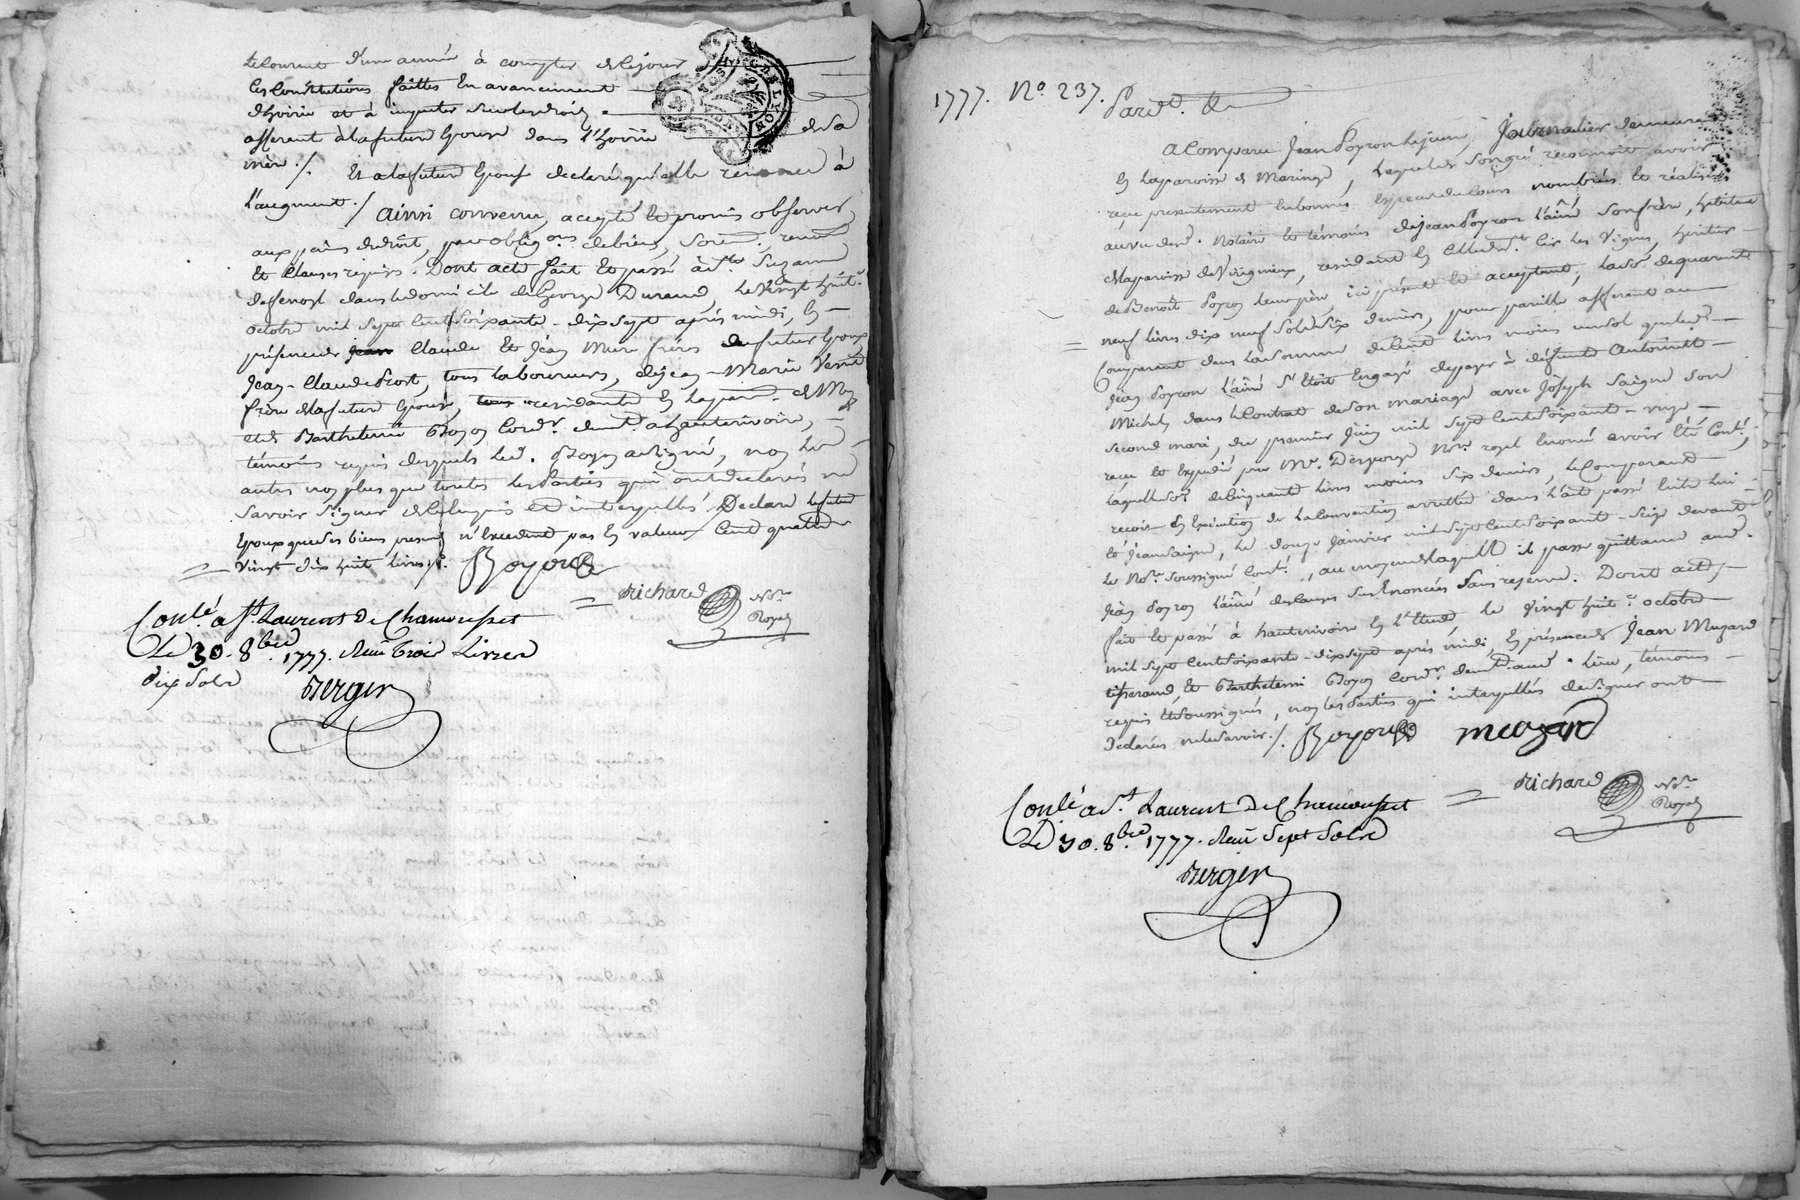 le courant d'une année à compter de ce jour
les constitutions faittes en avancement
d'hoirie et à imputer sur les droits
afferent à la future Epouse dans l'hoirie de sa
mère ./. Et a la future Epouse declaré qu'elle renonce à
l'augment ./ Ainsi convenu, accepté et promis observer
aux peines de droit, par oblig.ons de biens, soum. renon.
et clauses requises. Dont acte fait et passé à S.te Suzane
dans le domicile de George Durand, le vingt huit.e
octobre mil sept cent soixante-dix sept après midi, En
présences de Claude et Jean frères du futur Epoux
Jean-Claude tous laboureurs, de Jean-Marie
frère de la future Epouse, residants En la par. de
et de Barthelemi Boyou Cord.r dem.t à hauterivoire,
témoins requis desquels led. Boyou a signé, non les
autres non plus que toutes les Parties qui ont déclarés ne
savoir signer de ce enquis et interpellés. Declare le futur
Epoux que ses biens presens n'Excedent pas En valeur Cent quatre
vingt dix huit livres ./. Boyou
= richard No.re Royal
Conlé a St. Laurent De Chamousset
Le 30. 8bre 1777. Reçu trois Livres
dix Sols
Berger
DE LYON
1777. N.o 237. Pard.t &
A Comparu Jean Poyron le jeune, Journalier demeurant
En la paroisse de Maringe, Lequel de son gré reconnoit avoir
reçu presentement En bonnes Especes de Cours nombrées et réalisées
au vu de n. Notaire et témoins de Jean Poyron L'ainé son frère, habitant
de la paroisse de Virigneux, residant En
de Benoît Poyron leur père, ici présent et acceptant, la so.e de quarante
neuf livres dix neuf sols six deniers, pour pareille afferent au
Comparant dans la somme de Cent livres moins un sol que led.
Jean Poyron L'ainé s'étoit Engagé de payer à défunte Antoinette
Michel, dans le Contrat de son mariage avec Joseph Saigne son
second mari, du premier Juin mil sept cent soixante-
reçu et Expedié par M.e No.re royal Enoncé avoir été Conlé,
laquelle so.e de Cinquante livres moins six deniers, le Comparant
reçoit En Exécution de la Convention arrettée dans l'acte passé Entre lui
et Jean Saigne, Le douze Janvier mil sept cent soixante-seize devant
le No.re soussigné Conlé, au moyen de laquelle il passe quittance aud.
Jean Poyron L'ainé des Causes sus Enoncées sans reserve. Dont acte
fait et passé à hauterivoire En l'Etude, le vingt huit.e octobre
mil sept cent soixante-dix sept après midi, En présences de Jean Muzard
tisserand, et Barthelemi Boyou Cord.r dem.t aud. Lieu, témoins
requis et soussignés, non les Parties qui interpellées de signer ont
Declarées ne le savoir ./. Boyou meuzard
= richard No.re Royal
Conlé a St. Laurent De Chamousset
Le 30. 8bre 1777. Reçu Sept Sols
Berger